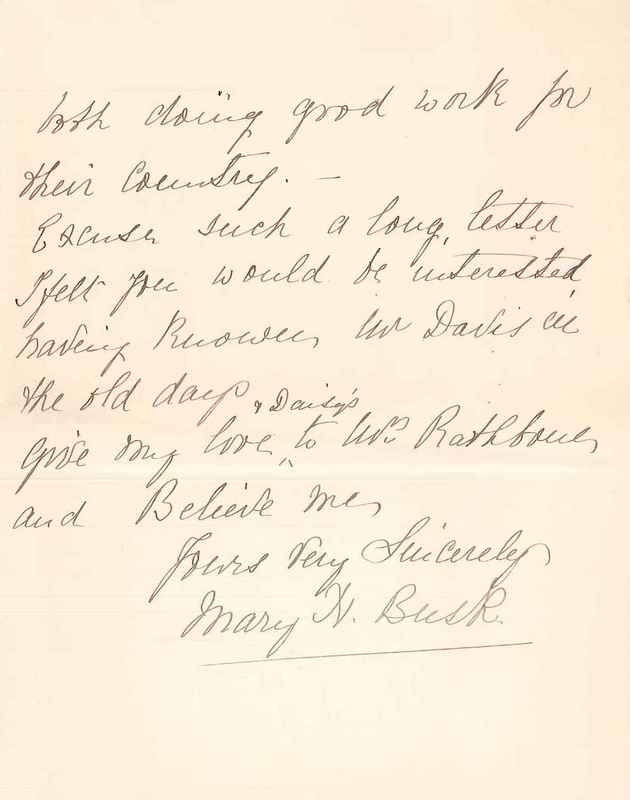 both doing good work for
their country. —
Excuse such a long letter
I felt you would be interested
having known Mr Davis in
the old days
& Daisy's
Give my love ^ to Mrs Rathbone
and Believe me
Yours Very Sincerely
Mary H. Busk.